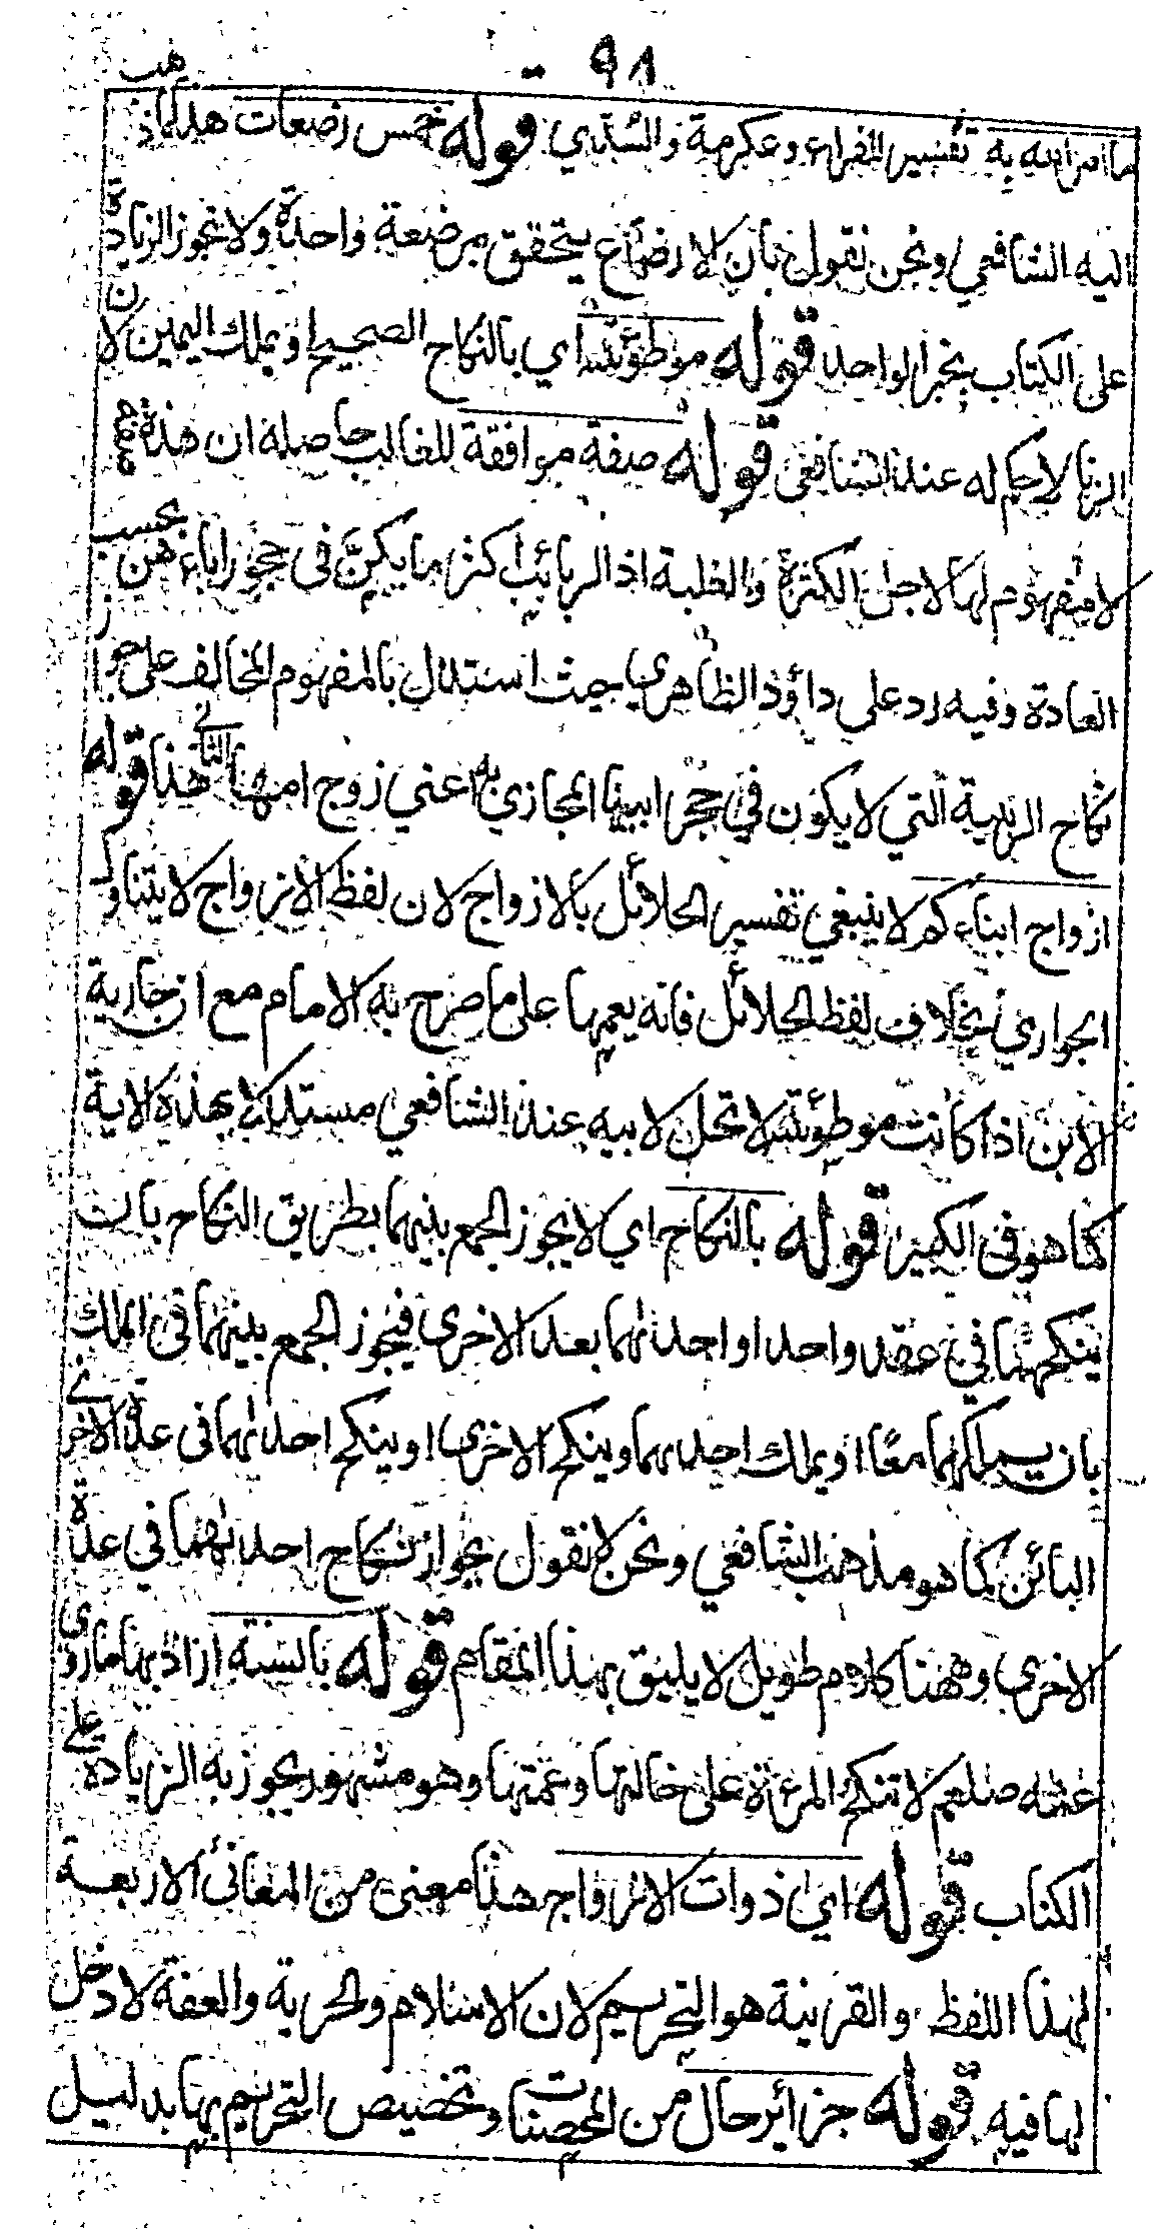 ٩٨
ما امر الله به تفسير الفراء وعكرمة والسدي قوله خمس رضعات هذا ما ذهب
اليه الشافعي ونحن نقول بان الارضاع يتحقق برضعة واحدة ولا نجوز الزيادة
على الكتاب بخبر الواحد قوله موطوئته اي بالنكاح الصحيح او بملك اليمين لان
الزنا لا حكم له عند الشافعي قوله صفة موافقة للغالب حاصله ان هذه مما
لا مفهوم لها لاجل الكثرة والغلبة اذ الربائب اكثر ما يكنّ في حجور اباءهن بحسب
العادة وفيه رد على داؤد الظاهري حيث استدلال بالمفهوم المخالف على جواز
نكاح الربيبة التي لا يكون في حجر ابيها المجازي به اعني زوج امها الثاني هذا قوله
ازواج ابناءكم لا ينبغي تفسير الحلائل بالازواج لان لفظ الازواج لا يتناول
الجواري بخلاف لفظ الحلائل فانه يعمها على ما صرح به الامام مع ان جارية
الابن اذا كانت موطوئته لا تحل لابيه عند الشافعي مستدلا بهذه الاية
كما هو في الكبير قوله بالنكاح اي لا يجوز الجمع بينهما بطريق النكاح بان
ينكحهما في عقد واحد او احدٰهما بعد الاخرى فيجوز الجمع بينهما في الملك
بان يملكهما معًا او يملك احدٰهما وينكح الاخرى او ينكح احدٰهما في عدة الاخرى
البائن كما هو مذهب الشافعي ونحن لا نقول بجواز نكاح احدٰهما في عدة
الاخرى وههنا كلام طويل لا يليق بهذا المقام قوله بالسنة اراد بها ما روي
عنه صلعم لا تنكح المرءة على خالتها وعمتها وهو مشهور يجوز به الزيادة على
الكتاب قوله اي ذوات الازواج هذا معنى من المعاني الاربعة
لهذا اللفظ والقرينة هو التحريم لان الاسلام والحرية والعفة لا دخل
لها فيه قوله حرائر حال من المحصنات وتخصيص التحريم بها بدليل